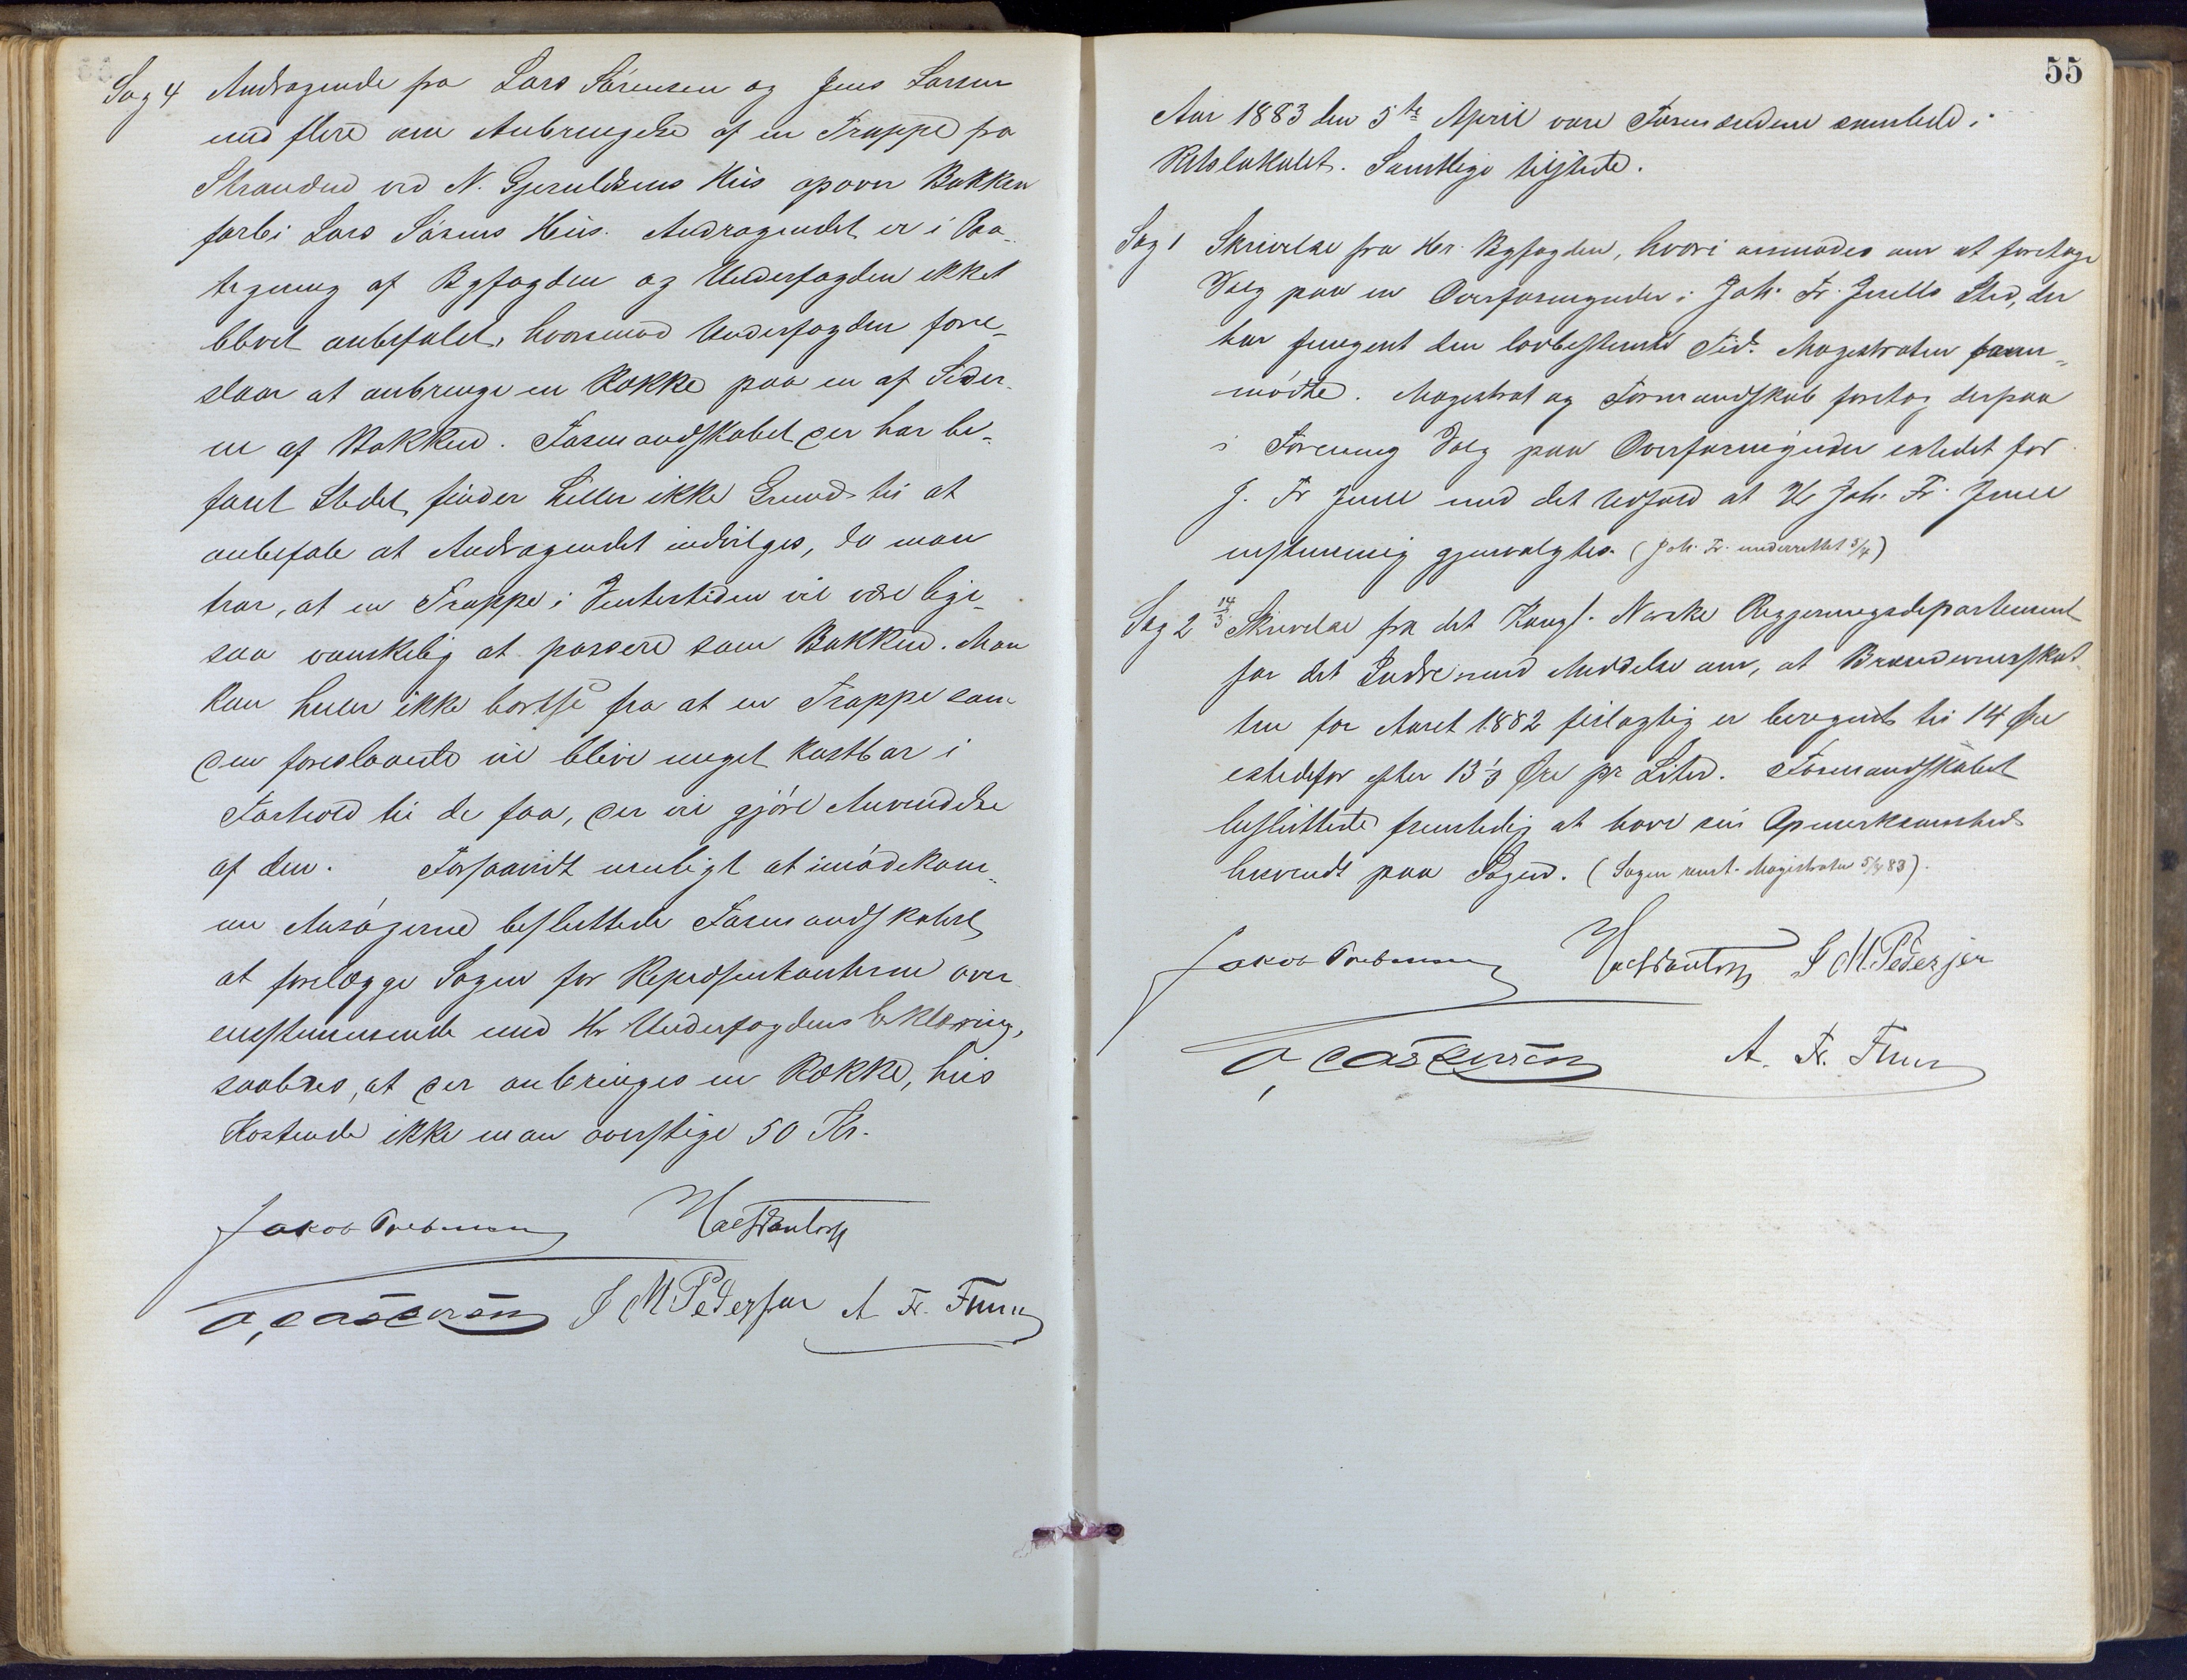 Sag 4 Andragende fra Lars Sörensen og Jens Larsen
med flere om Anbringelse af en Trappe fra
Stranden ved N. Gjeruldsens Hus opover Bakken
forbi Lars Sörens Hus. Andragendet er i Paa-
tegning af Byfogden og Underfogden ikke
blevet anbefalet, hvorimod Underfogden fore-
slaar at anbringe en Række paa en af Sider-
ne af Bakken. Formandskabet der har be-
faret Stedet, finder heller ikke Grund til at
anbefale at Andragendet indvilges, da man
tror, at en Trappe i Vintertiden vil være lige-
saa vanskelig at passere som Bakken. Man
kan heller ikke bortse fra at en Trappe som
den foreslaaede vil blive meget kostbar i
Forhold til de faa, der vil gjöre Anvendelse
af den. Forsaavidt muligt at imödekom-
me Ansögerne besluttede Formandskabet
at forelægge Sagen for Repræsentanterne over
ensstemmende med Hr Underfogdens Erklæring,
saaledes, at der anbringes en Række, hvis
Kostende ikke maa overstige 50 Kr.
Jakob
O. J M Pedersen A Fr.
55
Aar 1883 den 5te April vare Formændene samlede i
Retslokalet. Samtlige tilstede.
Sag 1 Skrivelse fra Hr. Byfogden, hvori anmodes om at foretage
Valg paa en Overformynder i Joh. Fr. Juells Sted, der
har fungeret den lovbestemte Tid. Magistraten frem-
mödte. Magistrat og Formandskab foretog derpaa
i Forening Valg paa Overformynder istedet for
J. Fr Juell med det Udfald at Hr Joh. Fr. Juell
enstemmig gjenvalgtes. (Joh. Fr. underrettet 5/4)
Sag 2 14/3 Skrivelse fra det Kongl. Norske Regjeringsdepartement
for det Indre med Meddelse om, at Brændevinsskat-
ten for Aaret 1882 feilagtig er beregnet til 14 Öre
istedetfor efter 13 1/3 Öre pr Liter. Formandskabet
besluttede fremtidig at have sin Opmerksomhed
henvendt paa Sagen. (Sagen remt. Magistraten 5/4 83).
Jakob J M. Pedersen
O. A. Fr.